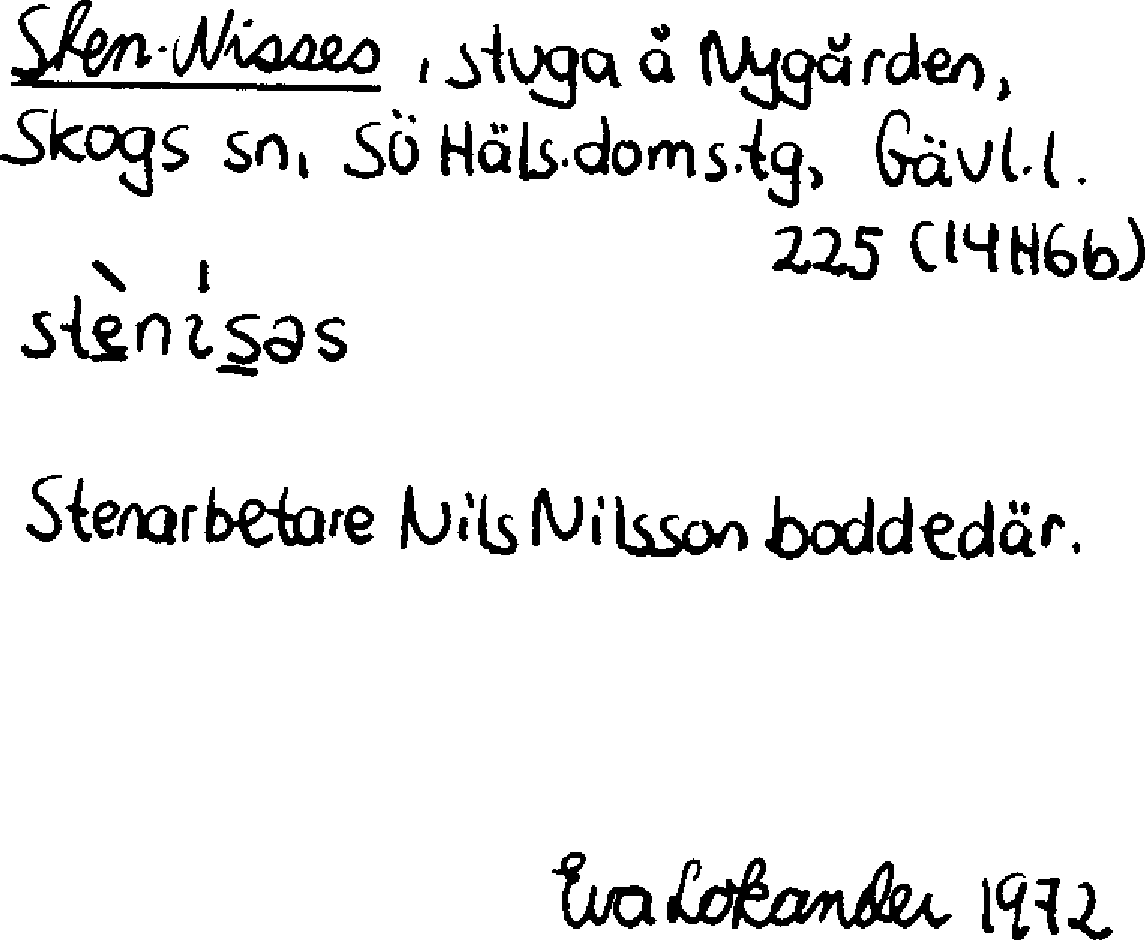 Sten-Nisses, stuga å Nygården,
Skogs sn, Sö Häls. doms.tg, Gävl.l.
225 (14H6b)
stènisəs
Stenarbetare Nils Nilsson bodde där.
Eva Lokander 1972